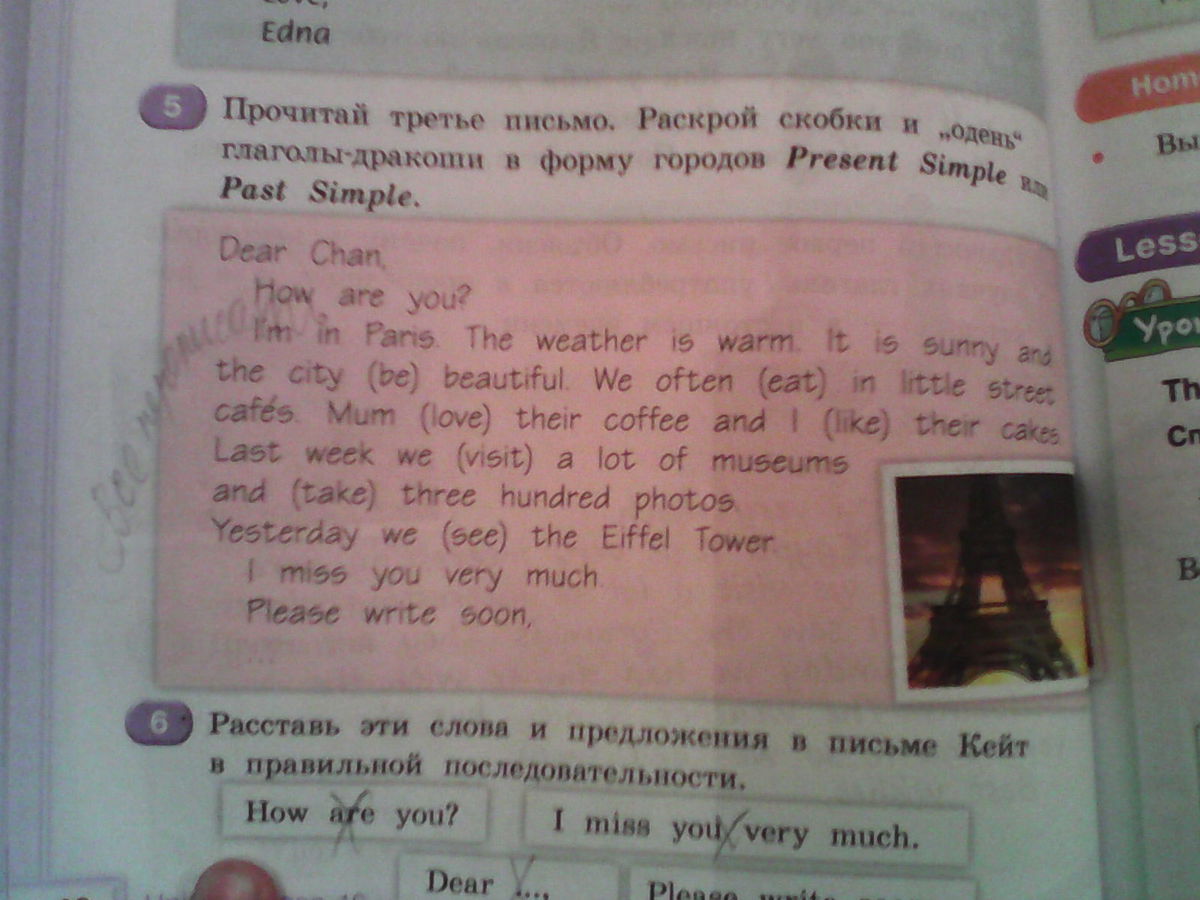 Edna
5 Прочитай третье письмо. Раскрой скобки и „одень“
глаголы-дракоши в форму городов Present Simple или
Past Simple.
Dear Chan,
How are you?
I'm in Paris. The weather is warm. It is sunny and
the city (be) beautiful. We often (eat) in little street
cafés. Mum (love) their coffee and I (like) their cakes.
Last week we (visit) a lot of museums
and (take) three hundred photos.
Yesterday we (see) the Eiffel Tower.
I miss you very much.
Please write soon,
...
6 Расставь эти слова и предложения в письме Кейт
в правильной последовательности.
How are you?
I miss you very much.
Dear ...,
Please write
Hom
Вы
Less
Уро
Th
Сп
В